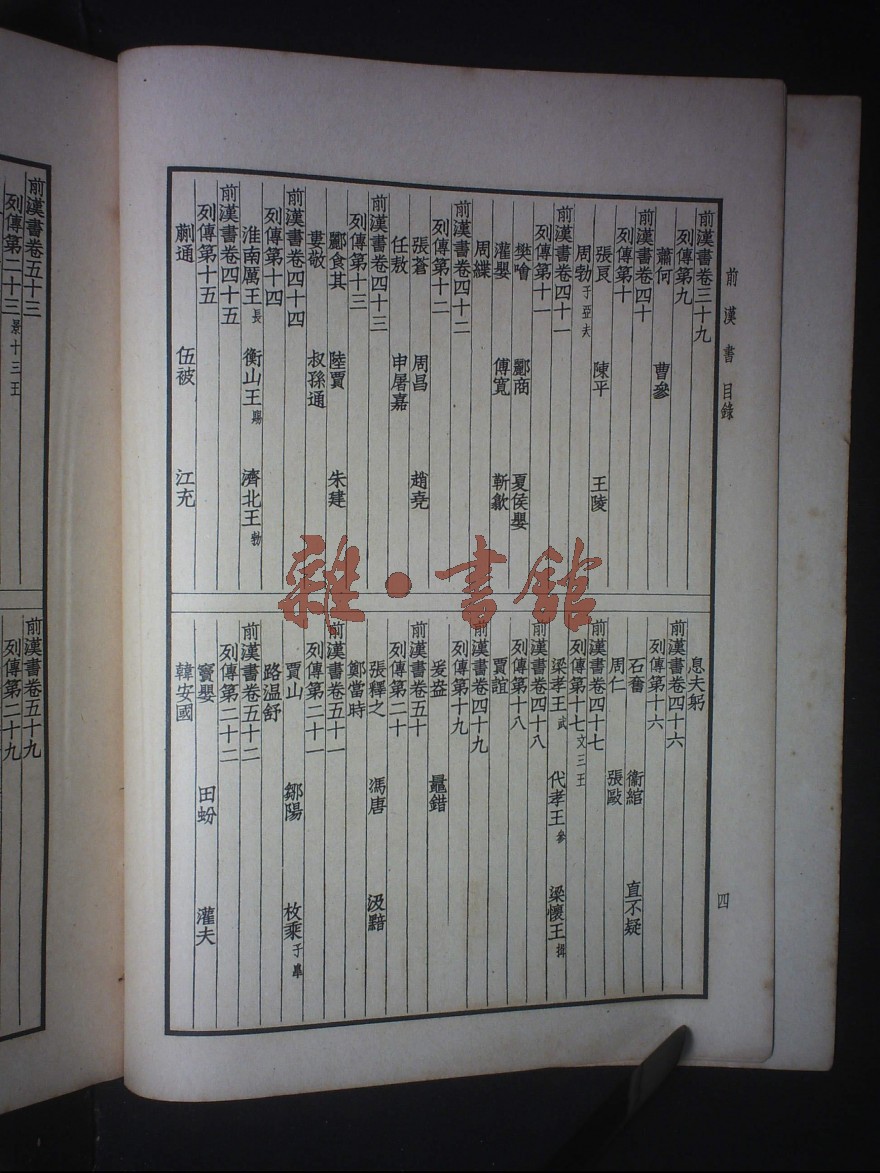 前漢書 目錄
四
前漢書卷三十九
列傳第九
蕭何 曹參
前漢書卷四十
列傳第十
張良 陳平 王陵
周勃 子亞夫
前漢書卷四十一
列傳第十一
樊噲 酈商 夏侯嬰
灌嬰 傅寬 靳歙
周緤
前漢書卷四十二
列傳第十二
張蒼 周昌 趙堯
任敖 申屠嘉
前漢書卷四十三
列傳第十三
酈食其 陸賈 朱建
婁敬 叔孫通
前漢書卷四十四
列傳第十四
淮南厲王 長 衡山王 賜 濟北王 勃
前漢書卷四十五
列傳第十五
蒯通 伍被 江充
息夫躬
前漢書卷四十六
列傳第十六
石奮 衞綰 直不疑
周仁 張歐
前漢書卷四十七
列傳第十七 文三王
梁孝王 武 代孝王 參 梁懷王 揖
前漢書卷四十八
列傳第十八
賈誼
前漢書卷四十九
列傳第十九
爰盎 鼂錯
前漢書卷五十
列傳第二十
張釋之 馮唐 汲黯
鄭當時
前漢書卷五十一
列傳第二十一
賈山 鄒陽 枚乘 子臯
路温舒
前漢書卷五十二
列傳第二十二
竇嬰 田蚡 灌夫
韓安國
前漢書卷五十三
列傳第二十三 景十三王
前漢書卷五十九
列傳第二十九
雜·書館